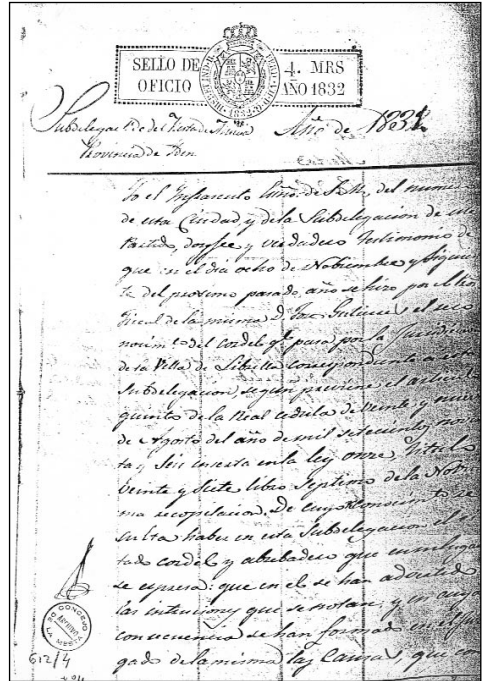 SELLO DE OFICIO
4. MRS AÑO 1832
Año de 1832
Provincia de
Yo el Infraescrito Essno. de S. M. del numero
de esta Ciudad y de la Subdelegacion de su
Partido, doy fee y verdadero testimonio de
que en el dia ocho de Noviembre y siguien
te del proximo pasado año se hizo por el
fiscal de la misma D. el reco
nocim.to del cordel q.e pasa por la Jurisdicion
de la Villa de Librilla correspondiente a esta
Subdelegacion, segun previene el articulo
quinto de la Real cedula de veinte y nueve
de Agosto del año de mil setecientos noven
ta y seis inserta en la ley once, titulo
veinte y siete libro septimo de la Novi
ma recopilacion. De cuyo reconocim.to re
sulta haber en esta Subdelegacion el
tado cordel y abrebadero que en su lugar
se espresa: que en el se han advertido
las intrusiones que se notan; y en cuya
consecuencia se han formado en el Juz
gado de la misma las causas, que con
CONCEJO DE LA MESTA
ARCHIVO
612/4